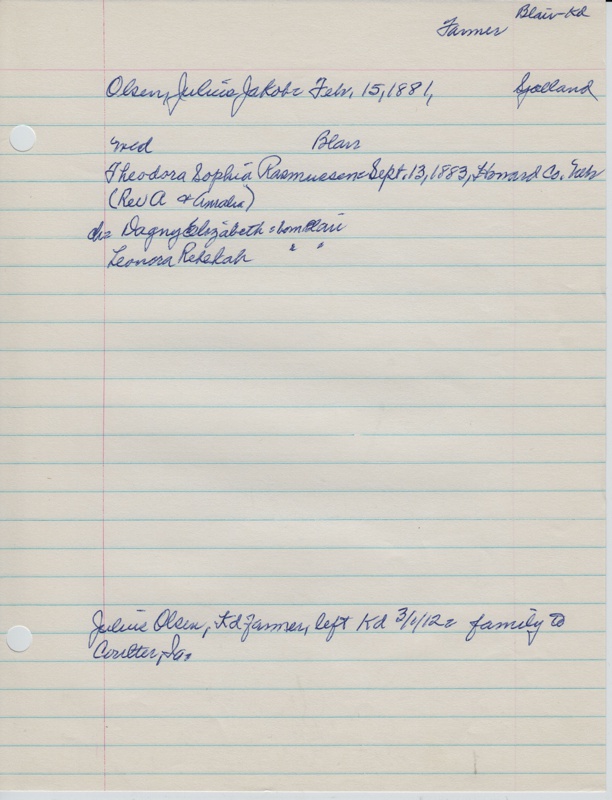 Blair-Kd
Farmer
Olsen, Julius Jakob = Feb. 15, 1881, Sjælland
wed Blair
Theodora Sophia Rasmussen = Sept. 13, 1883, Howard Co. Neb
(Rev A & Amalia)
ch = Dagny Elizabeth = born Blair
Leonora Rebekah " "
Julius Olsen, Kd farmer, left Kd 3/1/12 = family to
Coulter, Ia.